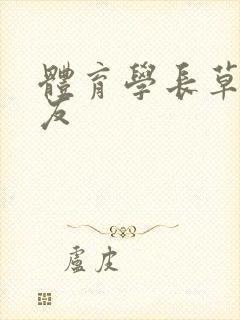 體育學長草
友
盧皮